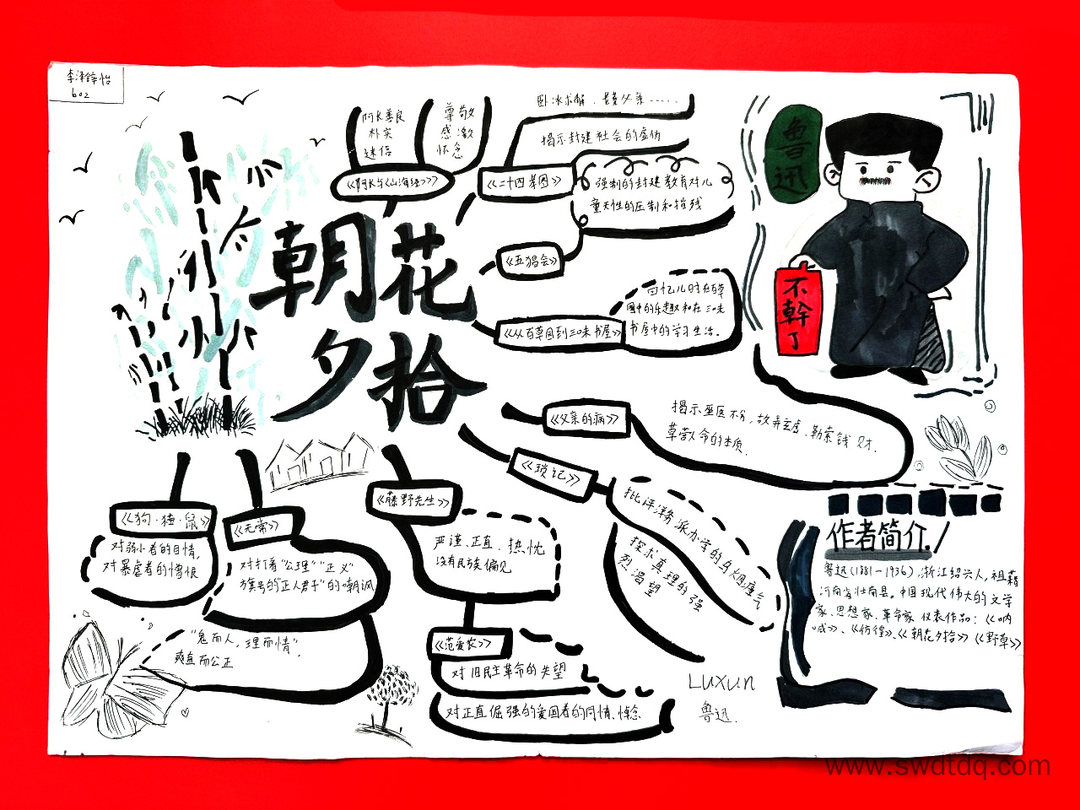 602
朝花
夕拾
《阿长与《山海经》》
阿长善良
朴实
迷信
尊敬
感激
怀念
《二十四孝图》
卧冰求鲤、老莱父亲……
揭示封建社会的虚伪
强制的封建教育对儿
童天性的压制和摧残
《五猖会》
《从百草园到三味书屋》
回忆儿时在百草
园中的乐趣和在三味
书屋中的学习生活。
《父亲的病》
揭示巫医不分,故弄玄虚、勒索钱财.
草菅人命的本质.
《琐记》
批评清新派办学的乌烟瘴气
探求真理的强
烈渴望
《藤野先生》
严谨、正直、热忱
没有民族偏见
《范爱农》
对旧民主革命的失望
对正直倔强的爱国者的同情、悼念
《狗·猫·鼠》
对弱小者的同情,
对暴虐者的憎恨
《无常》
对打着“公理”“正义”
旗号的“正人君子”的嘲讽
“鬼而人,理而情”,
爽直而公正
鲁
迅
不
幹
了
作者简介
鲁迅(1881-1936),浙江绍兴人,祖籍
河南省
中国现代伟大的文学
家、思想家、革命家.代表作品:《呐
喊》、《彷徨》、《朝花夕拾》《野草》
LUXUN
鲁迅.
www.swdtdq.com